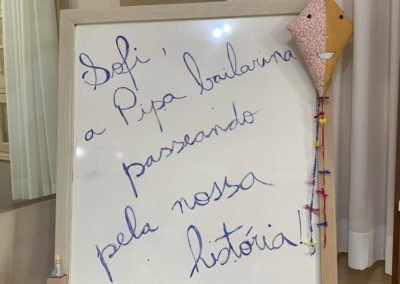 Sofi,
a Pipa bailarina
passeando
pela nossa
história!!